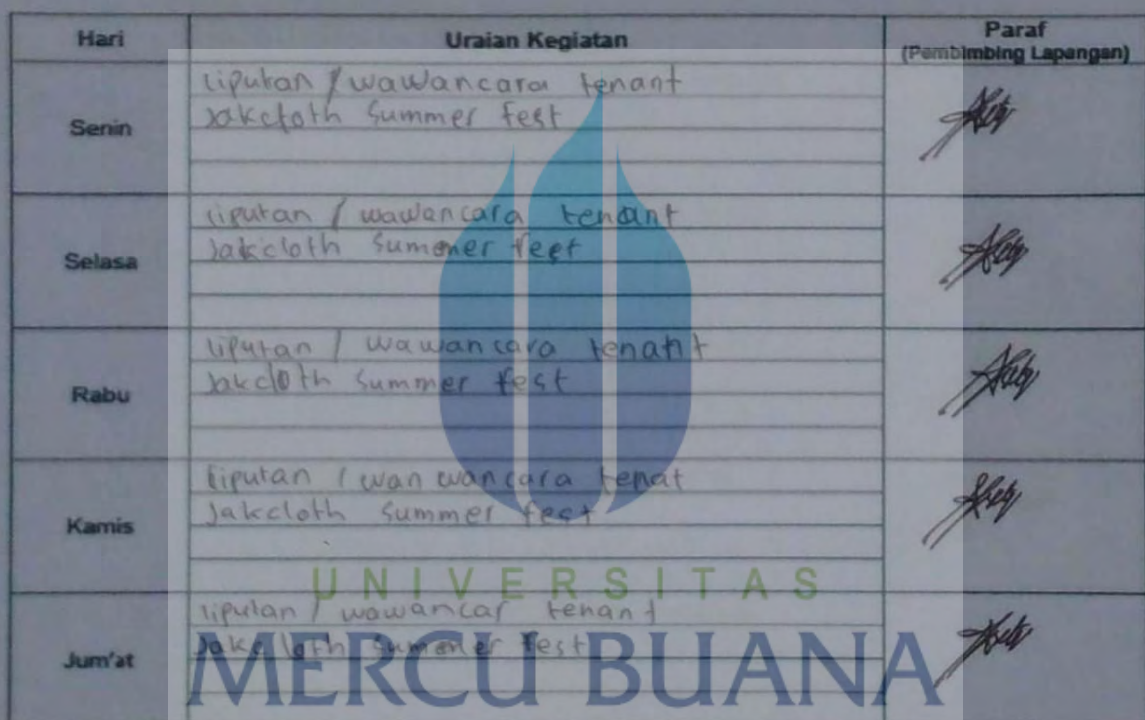 Hari Uraian Kegiatan Paraf
(Pembimbing Lapangan)
Senin
liputan / wawancara tenant
Jakcloth Summer fest
Selasa
liputan / wawancara tenant
Jakcloth Summer fest
Rabu
liputan / wawancara tenant
Jakcloth Summer fest
Kamis
liputan / wan wancara tenat
Jakcloth Summer fest
UNIVERSITAS
Jum'at
liputan / wawancar tenant
Jakcloth Summer fest
MERCU BUANA